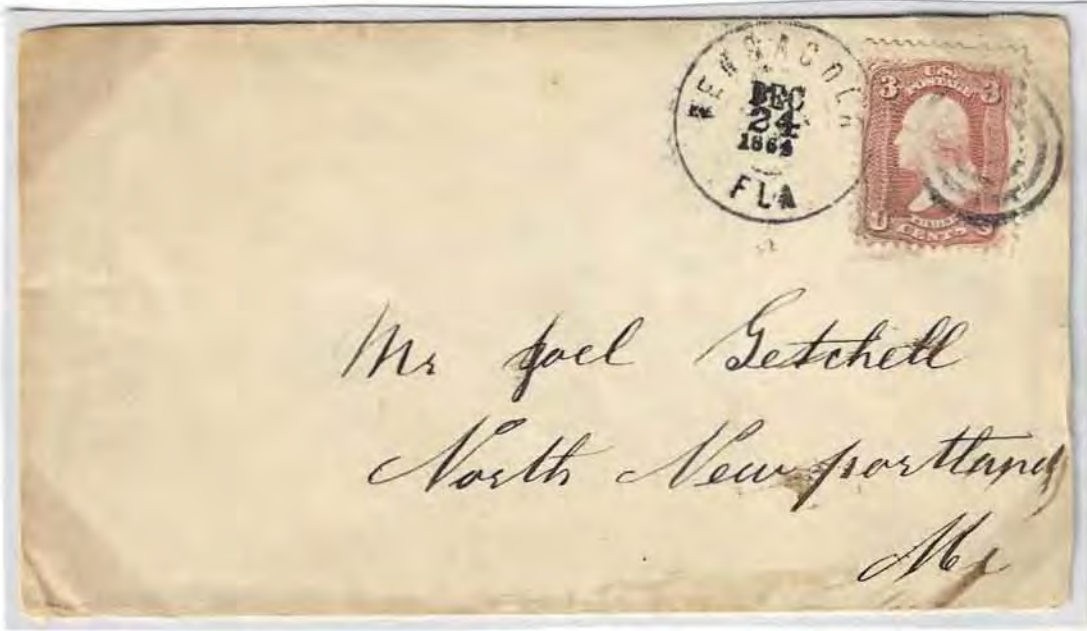 PENSACOLA
DEC
24
1864
FLA
3 U.S. POSTAGE 3
THREE
CENTS
Mr Joel Getchell
North New portland
Me